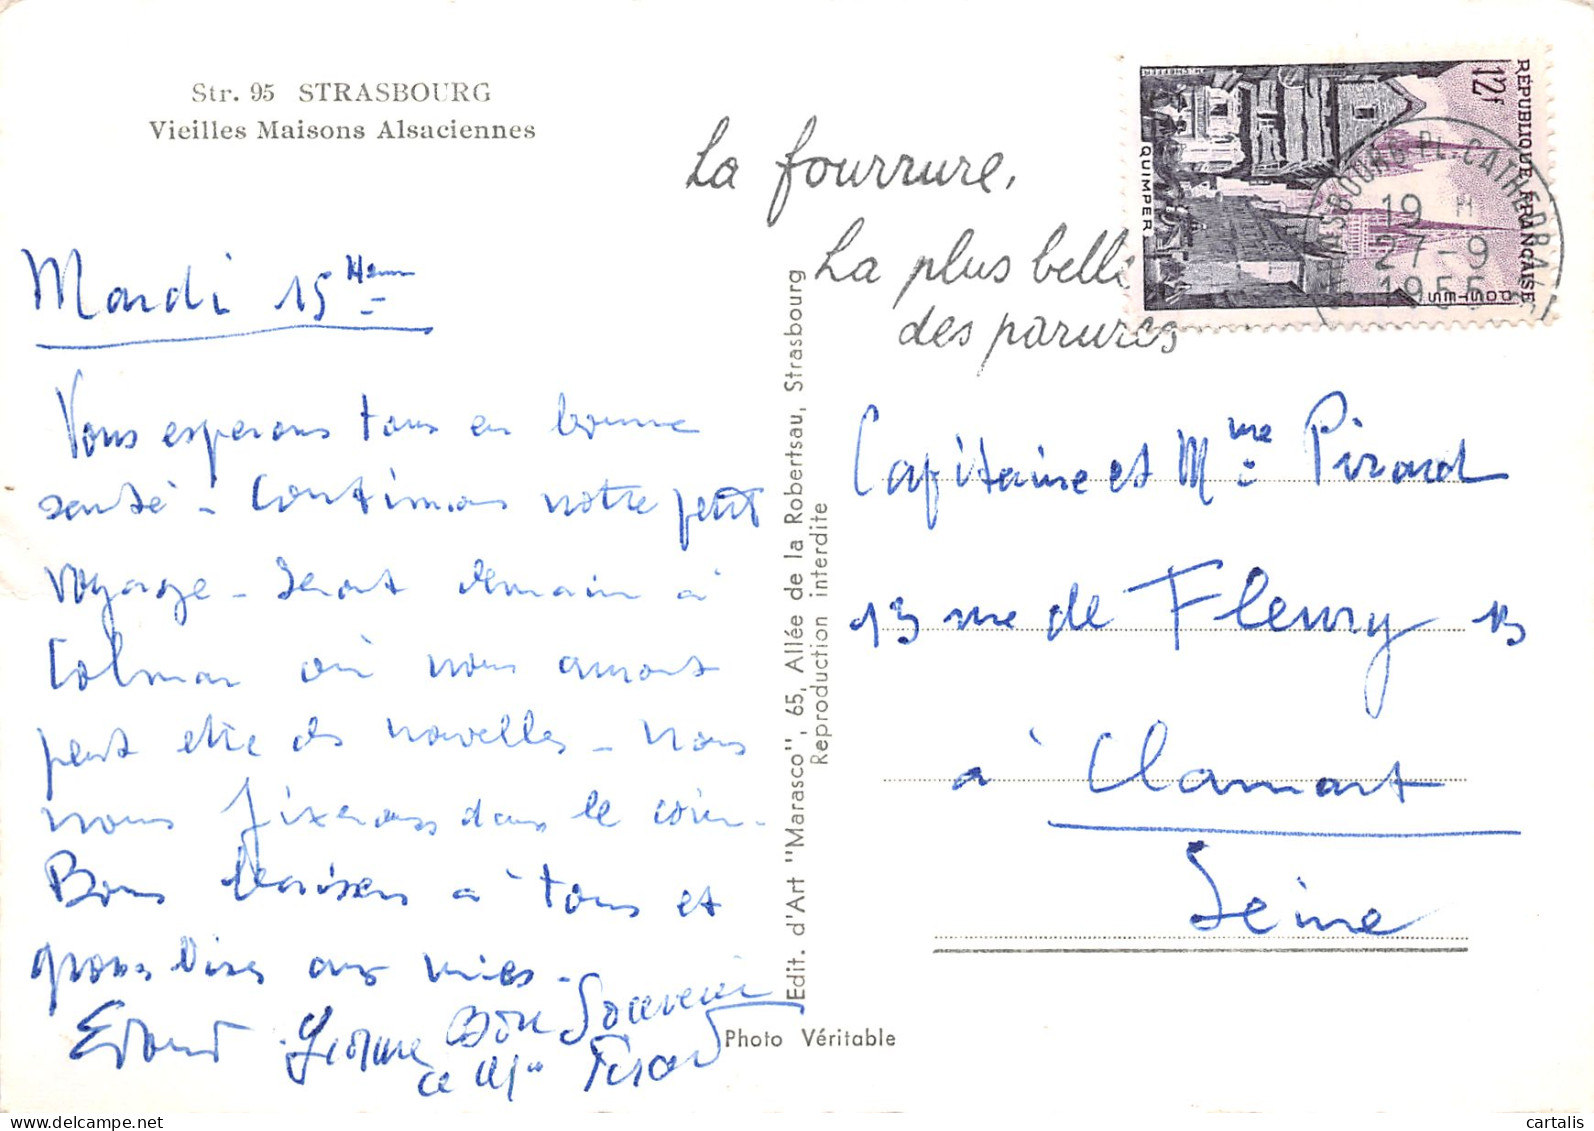 Str. 95 STRASBOURG
Vieilles Maisons Alsaciennes
La fourrure,
La plus belle
des parures
RÉPUBLIQUE FRANÇAISE
12f
POSTES
QUIMPER
STRASBOURG PL. CATHEDRALE
19 H
27-9
1955
Mardi 15
Vous esperons tous en bonne
santé - Continuons notre petit
voyage - Serons demain à
Colmar où nous aurons
peut etre des nouvelles - Nous
nous fixerons dans le coin -
Bons baisers à tous et
grosses bises aux
Edouard Bon Souvenir
de
Edit. d'Art "Marasco", 65, Allée de la Robertsau, Strasbourg
Reproduction interdite
Photo Véritable
Capitaine et Mme Pirard
13 rue de Fleury 13
à Clamart
Seine
cartalis